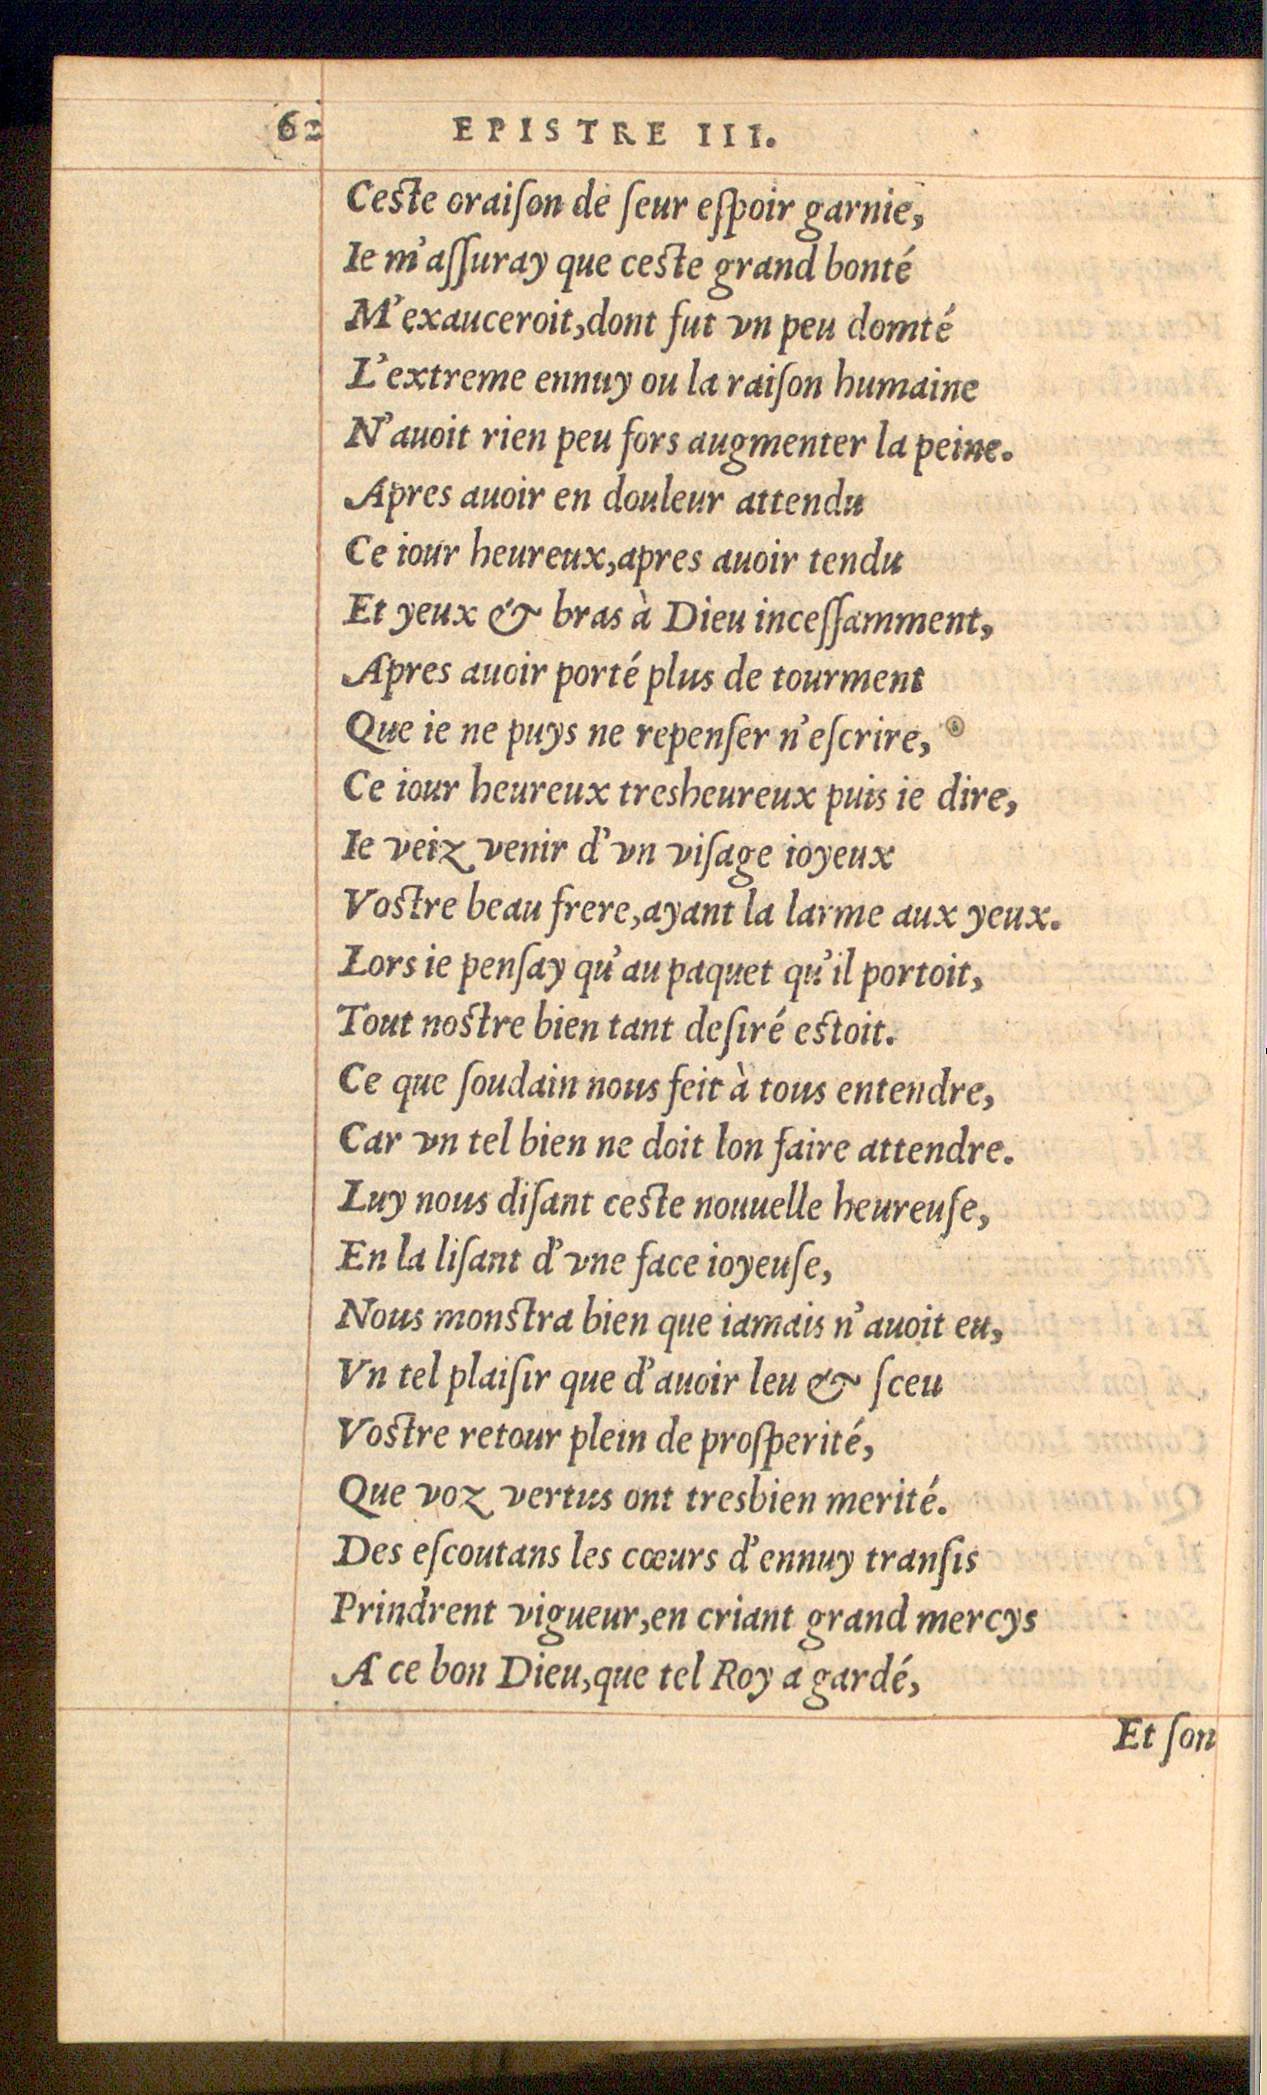 62 EPISTRE III.
Ceste oraiſon de ſeur eſpoir garnie,
Ie m'aſſuray que ceste grand bonté
M'exauceroit,dont fut vn peu domté
L'extreme ennuy ou la raiſon humaine
N'auoit rien peu fors augmenter la peine.
Apres auoir en douleur attendu
Ce iour heureux,apres auoir tendu
Et yeux & bras à Dieu inceſſamment,
Apres auoir porté plus de tourment
Que ie ne puys ne repenſer n'eſcrire,
Ce iour heureux tresheureux puis ie dire,
Ie veiz venir d'vn viſage ioyeux
Vostre beau frere,ayant la larme aux yeux.
Lors ie penſay qu'au paquet qu'il portoit,
Tout nostre bien tant deſiré estoit.
Ce que ſoudain nous feit à tous entendre,
Car vn tel bien ne doit lon faire attendre.
Luy nous diſant ceste nouuelle heureuſe,
En la liſant d'vne face ioyeuſe,
Nous monstra bien que iamais n'auoit eu,
Vn tel plaiſir que d'auoir leu & ſceu
Vostre retour plein de proſperité,
Que voz vertus ont tresbien merité.
Des eſcoutans les cœurs d'ennuy tranſis
Prindrent vigueur,en criant grand mercys
A ce bon Dieu,que tel Roy a gardé,
Et ſon